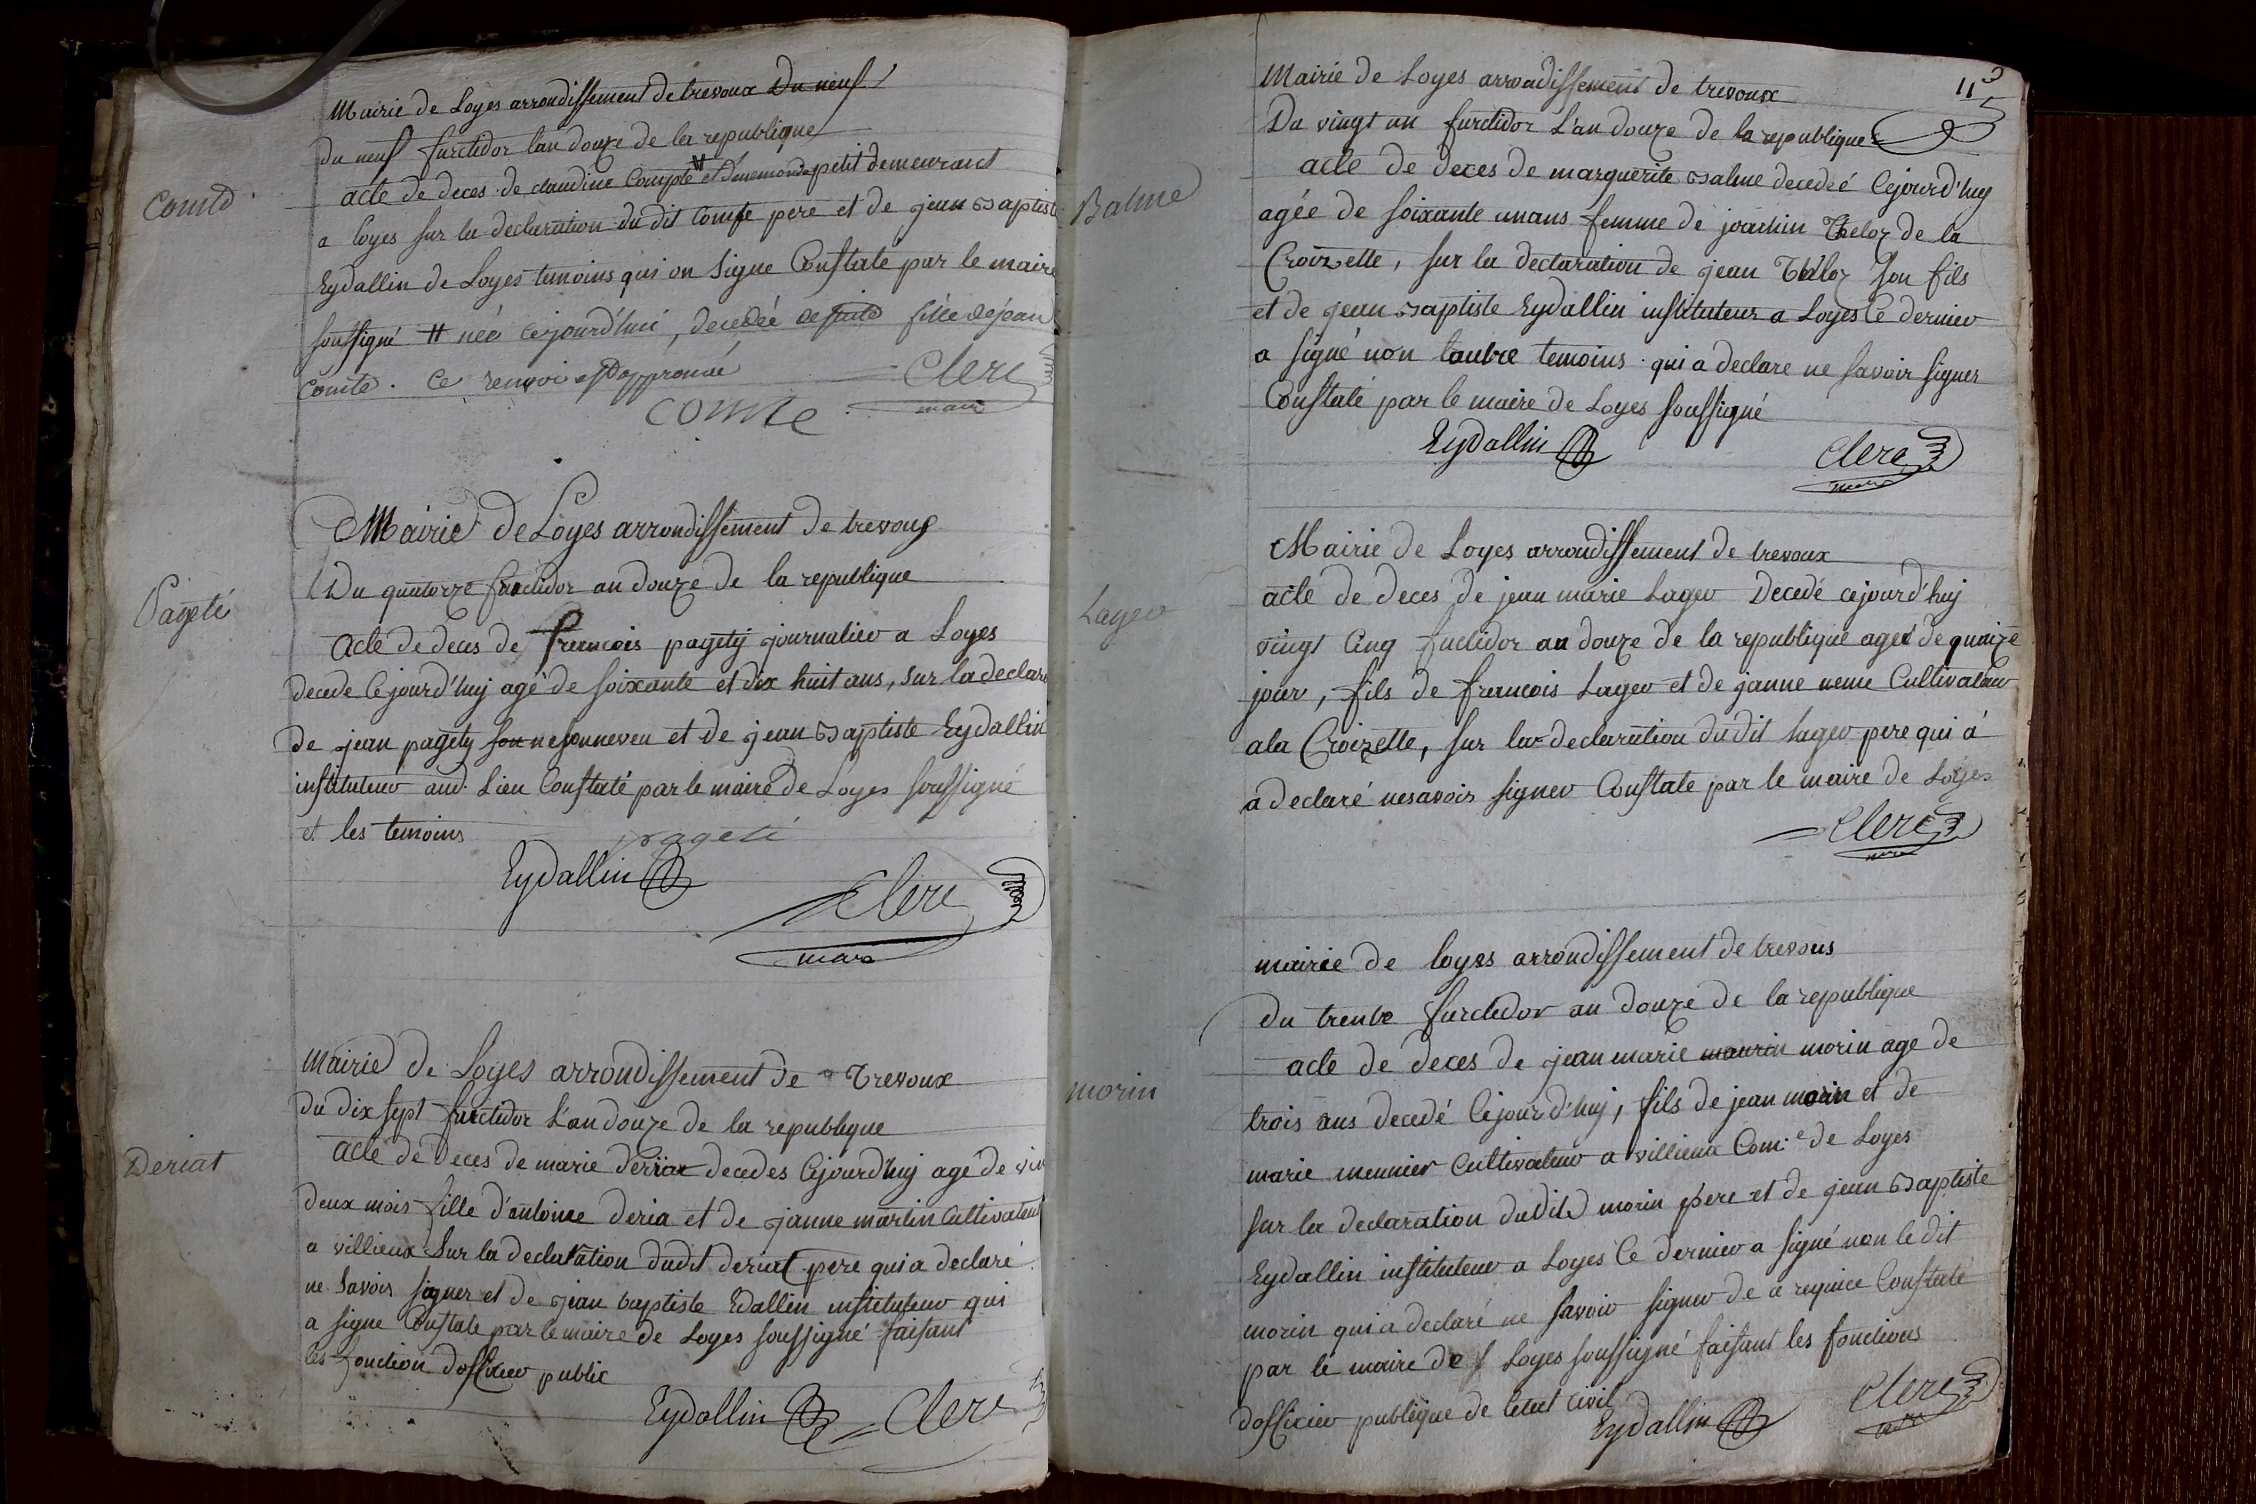 Mairie de Loyes arrondissement de trevoux Du neuf
du neuf fructidor l'an douze de la republique
comte
acte de deces de claudine Compte # et demonde petit demeurant
a loyes sur la declaration du dit Comte pere et de jean Baptiste
Eydallin de Loyes temoins qui on signe Constaté par le maire
soussigné # née cejourd'hui, decedée de suite fille de jean
comte. ce renvoi est approuvé
Clerc
maire
comte
Mairie de Loyes arrondissement de trevoux
Du quatorze fructidor an douze de la republique
Pageté
acte de deces de francois pagety journalier a Loyes
decede Cejourd'huy agé de soixante et dix huit ans, sur la declara
de jean pagety son ne son neveu et de jean Baptiste Eydallin
instituteur aud. Lieu Constaté par le maire de Loyes soussigné
et les temoins
pageti
Eydallin
Clerc
maire
mairie de Loyes arrondissement de Trevoux
du dix sept fructidor l'an douze de la republique
Deriat
acte de deces de marie deriat decedes Cejourd'huy agé de vin
deux mois fille d'antoine deria et de janne martin Cultivateur
a villieux Sur la declaration dudit deriat pere qui a declaré
ne Savoir signer et de jean baptiste Edallin instituteur qui
a signe Constate par le maire de Loyes soussigné faisant
les fonction dofficier public
Eydallin Clerc
113
Mairie de Loyes arrondissement de trevoux
Du vingt un fructidor L'an douze de la republique
Balme
acte de deces de marguerite Balme decedeé Cejourd'huy
agée de soixante un ans femme de joachin Theloz de la
Croizette, sur la declaration de jean Theloz son fils
et de jean Baptiste Eydallin instituteur a Loyes Ce dernier
a signé non l'autre temoins qui a declare ne savoir signer
Constaté par le maire de Loyes soussigné
Eydallin Clerc
maire
Mairie de Loyes arrondissement de trevoux
Lager
acte de deces de jean marie Lager Decedé cejourd'huy
vingt Cinq fructidor an douze de la republique agé de quinze
jour, fils de francois Lager et de janne neme Cultivateur
a la Croizette, sur la declaration dudit lager pere qui à
a declaré ne savoir signer Constate par le maire de Loyes
Clerc
maire
mairie de loyes arrondissement de trevous
du trente fructidor an douze de la republique
acte de deces de jean marie maurin morin age de
morin
trois ans decedé Cejourd'huy, fils de jean morin et de
marie meunier Cultivateur a villieux Com.e de Loyes
sur la declaration dudit morin pere et de jean Baptiste
Eydallin instituteur a Loyes Ce dernier a signé non le dit
morin qui a declaré ne savoir signer de ce requice Constaté
par le maire de Loyes soussigné faisant les fonctions
dofficier publique de l'etat civil
Eydallin Clerc
maire